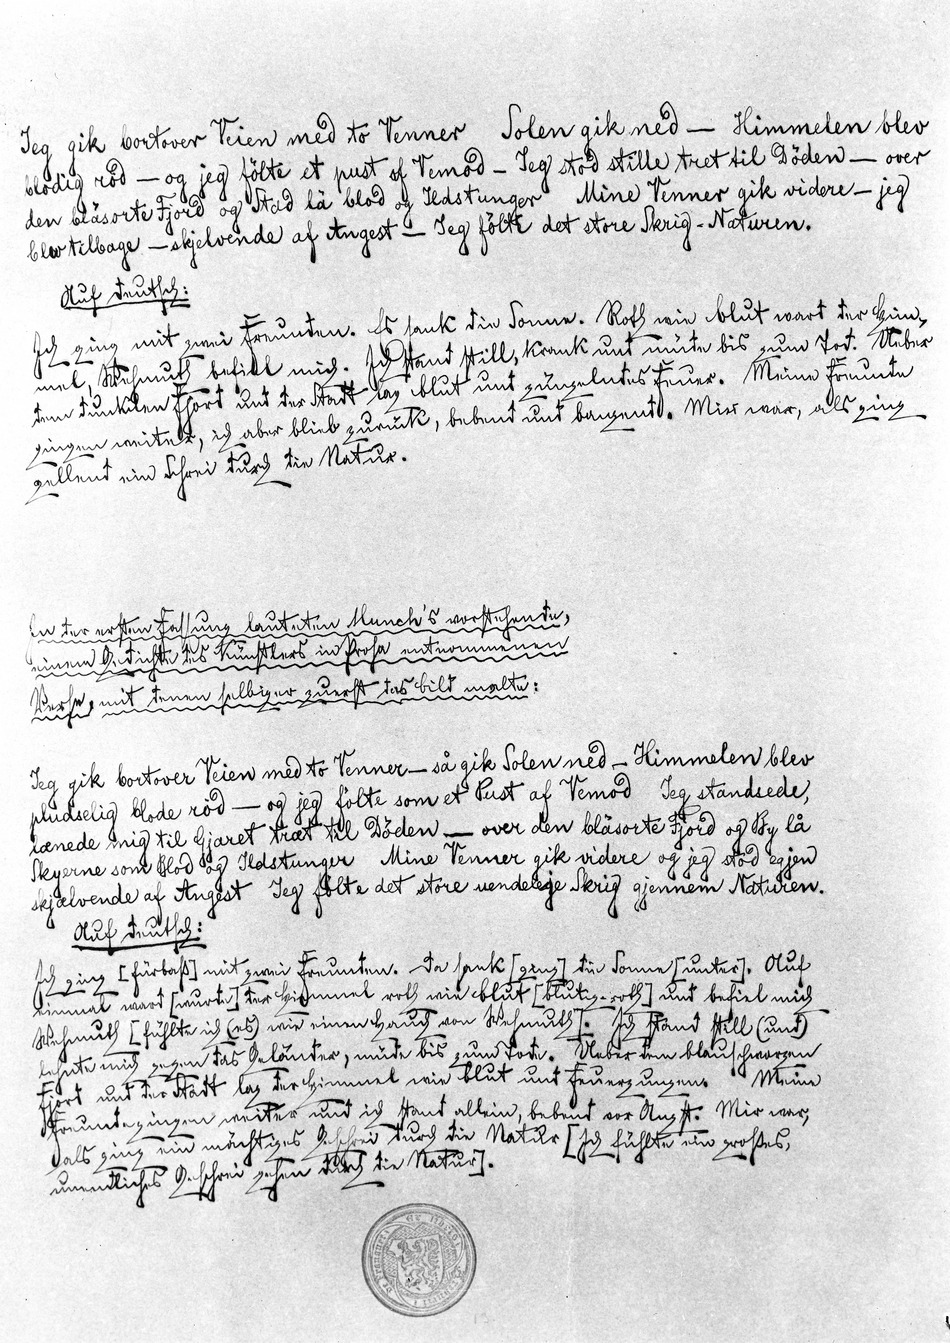 Jeg gik bortover Veien med to Venner Solen gik ned — Himmelen blev
blodig rød — og jeg følte et pust af Vemod — Jeg stod stille træt til Døden — over
den blåsorte Fjord og Stad lå blod og Ildstunger Mine Venner gik videre — jeg
blev tilbage — skjelvende af Angest — Jeg følte det store Skrig-Naturen.
Auf deutsch:
Ich ging mit zwei Freunden. Es sank die Sonne. Roth wie blut ward der Him-
mel, Wehmuth befiel mich. Ich stand still, krank und müde bis zum Tod. Ueber
dem dunklen Fjort und der Stadt lag blut und züngelndes Feuer. Meine Freunde
gingen weiter, ich aber blieb zurück, bebend und bangend. Mir war, als ging
gellend ein Schrei durch die Natur.
In der ersten Fassung lauteten Munch's vorstehende,
einem Gedichte des Künstlers in Prosa entnommenen
Verse, mit denen selbiger zuerst das bild malte:
Jeg gik bortover Veien med to Venner — så gik Solen ned — Himmelen blev
pludselig blode rød — og jeg følte som et Pust af Vemod Jeg standsede,
lænede mig til Gjæret træt til Døden — over den blåsorte Fjord og By lå
Skyerne som Blod og Ildstunger Mine Venner gik videre og jeg stod egjen
skjælvende af Angest Jeg følte det store uendelege Skrig gjennem Naturen.
Auf deutsch:
Ich ging [fürbaß] mit zwei Freunden. Da sank [ging] die Sonne [unter]. Auf
einmal ward [wurde] der Himmel roth wie blut [blutig-roth] und befiel mich
Wehmuth [fühlte ich (es) wie einen Hauch von Wehmuth]. Ich stand still (und)
lehnte mich gegen das Geländer, müde bis zum Tode. Ueber dem blauschwarzen
Fjort und der Stadt lag der Himmel wie blut und Feuerzungen. Meine
Freunde gingen weiter und ich stand allein, bebend vor Angst. Mir war,
als ging ein mächtiges Geschrei durch die Natur [Ich fühlte ein großes,
unendliches Geschrei gehen durch die Natur].